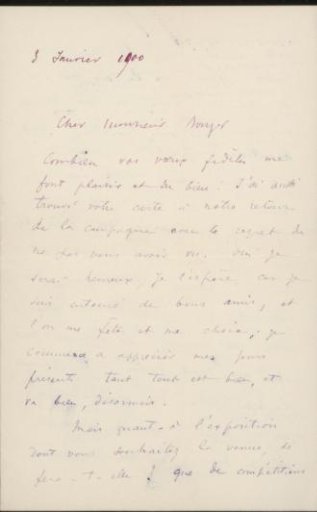 3 Janvier 1900
Cher Monsieur Bonger
Combien vos vœux fidèles me
font plaisir et du bien! J'ai aussi
trouvé votre carte à notre retour
de la campagne avec le regret de
ne pas vous avoir vu. Oui je
serai heureux, je l'espère, car je
suis entouré de bons amis, et
l'on me fête et me choie, je
commence à apprécier mes jours
présents tant tout est bien, et
va bien, désormais.
Mais quant à l'exposition
dont vous souhaitez la venue, se
fera-t-elle? que de compétitions